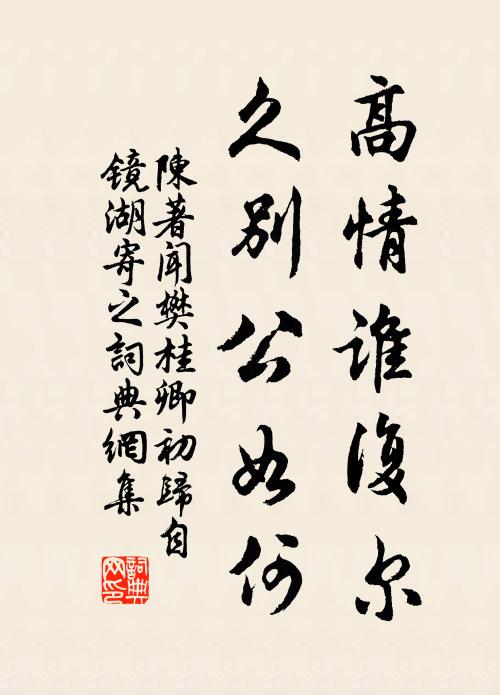 高情谁復尔
久别公如何
陳著闻樊桂卿初歸自
鏡湖寄之詞典網集
詞典网印